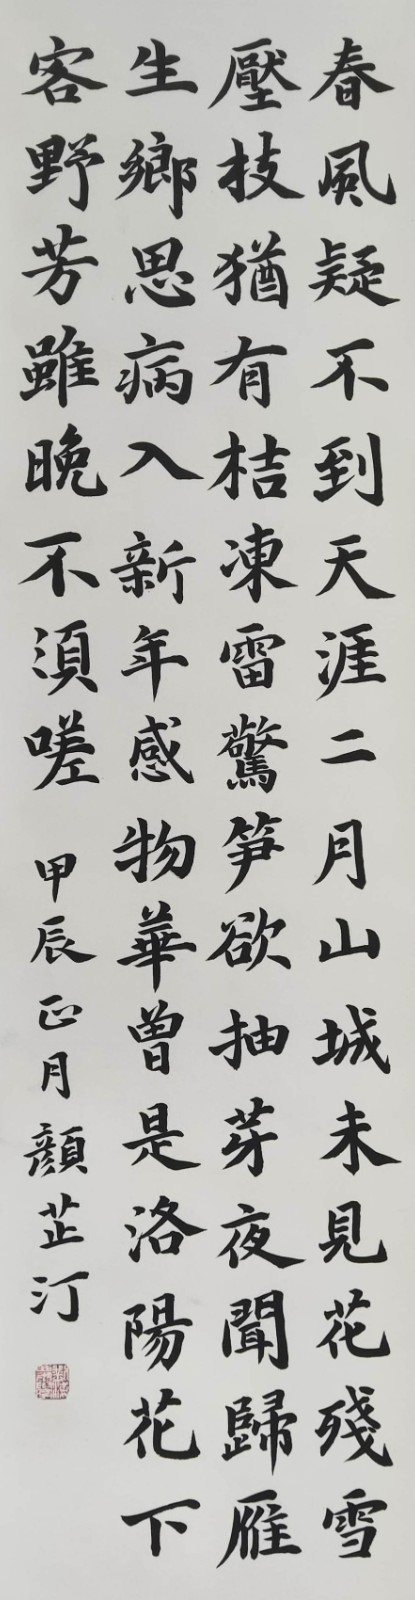 春風疑不到天涯二月山城未見花殘雪
壓技猶有桔凍雷驚笋欲抽芽夜聞歸雁
生鄉思病入新年感物華曾是洛陽花下
客野芳雖晚不湏嗟 甲辰正月顏芷汀